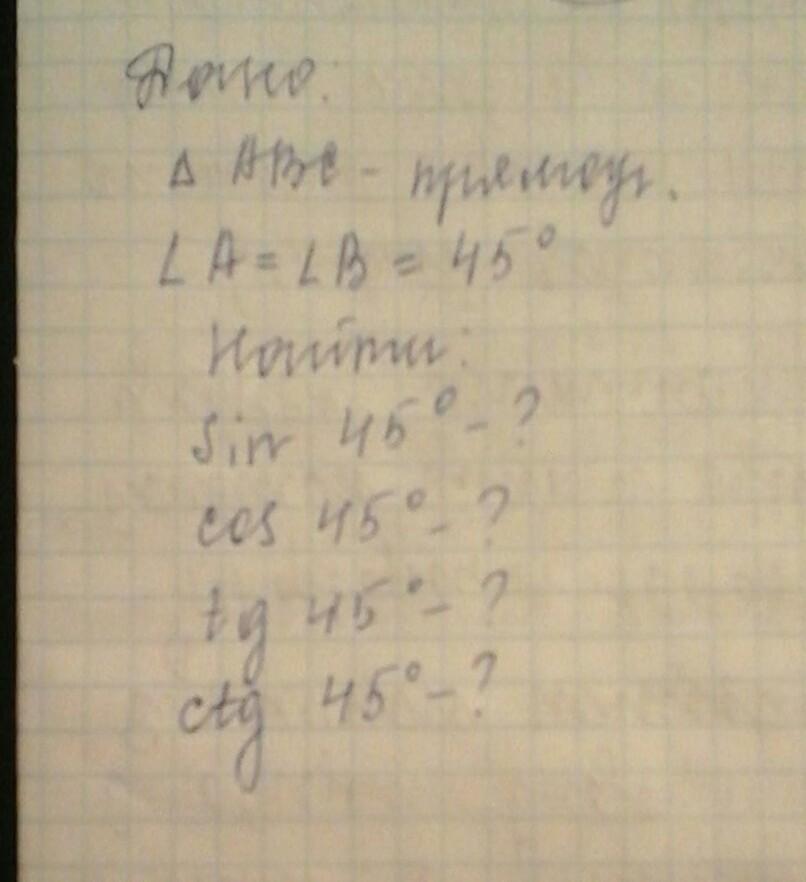 Дано:
Δ ABC - прямоуг.
∠A = ∠B = 45°
Найти:
sin 45° - ?
cos 45° - ?
tg 45° - ?
ctg 45° - ?